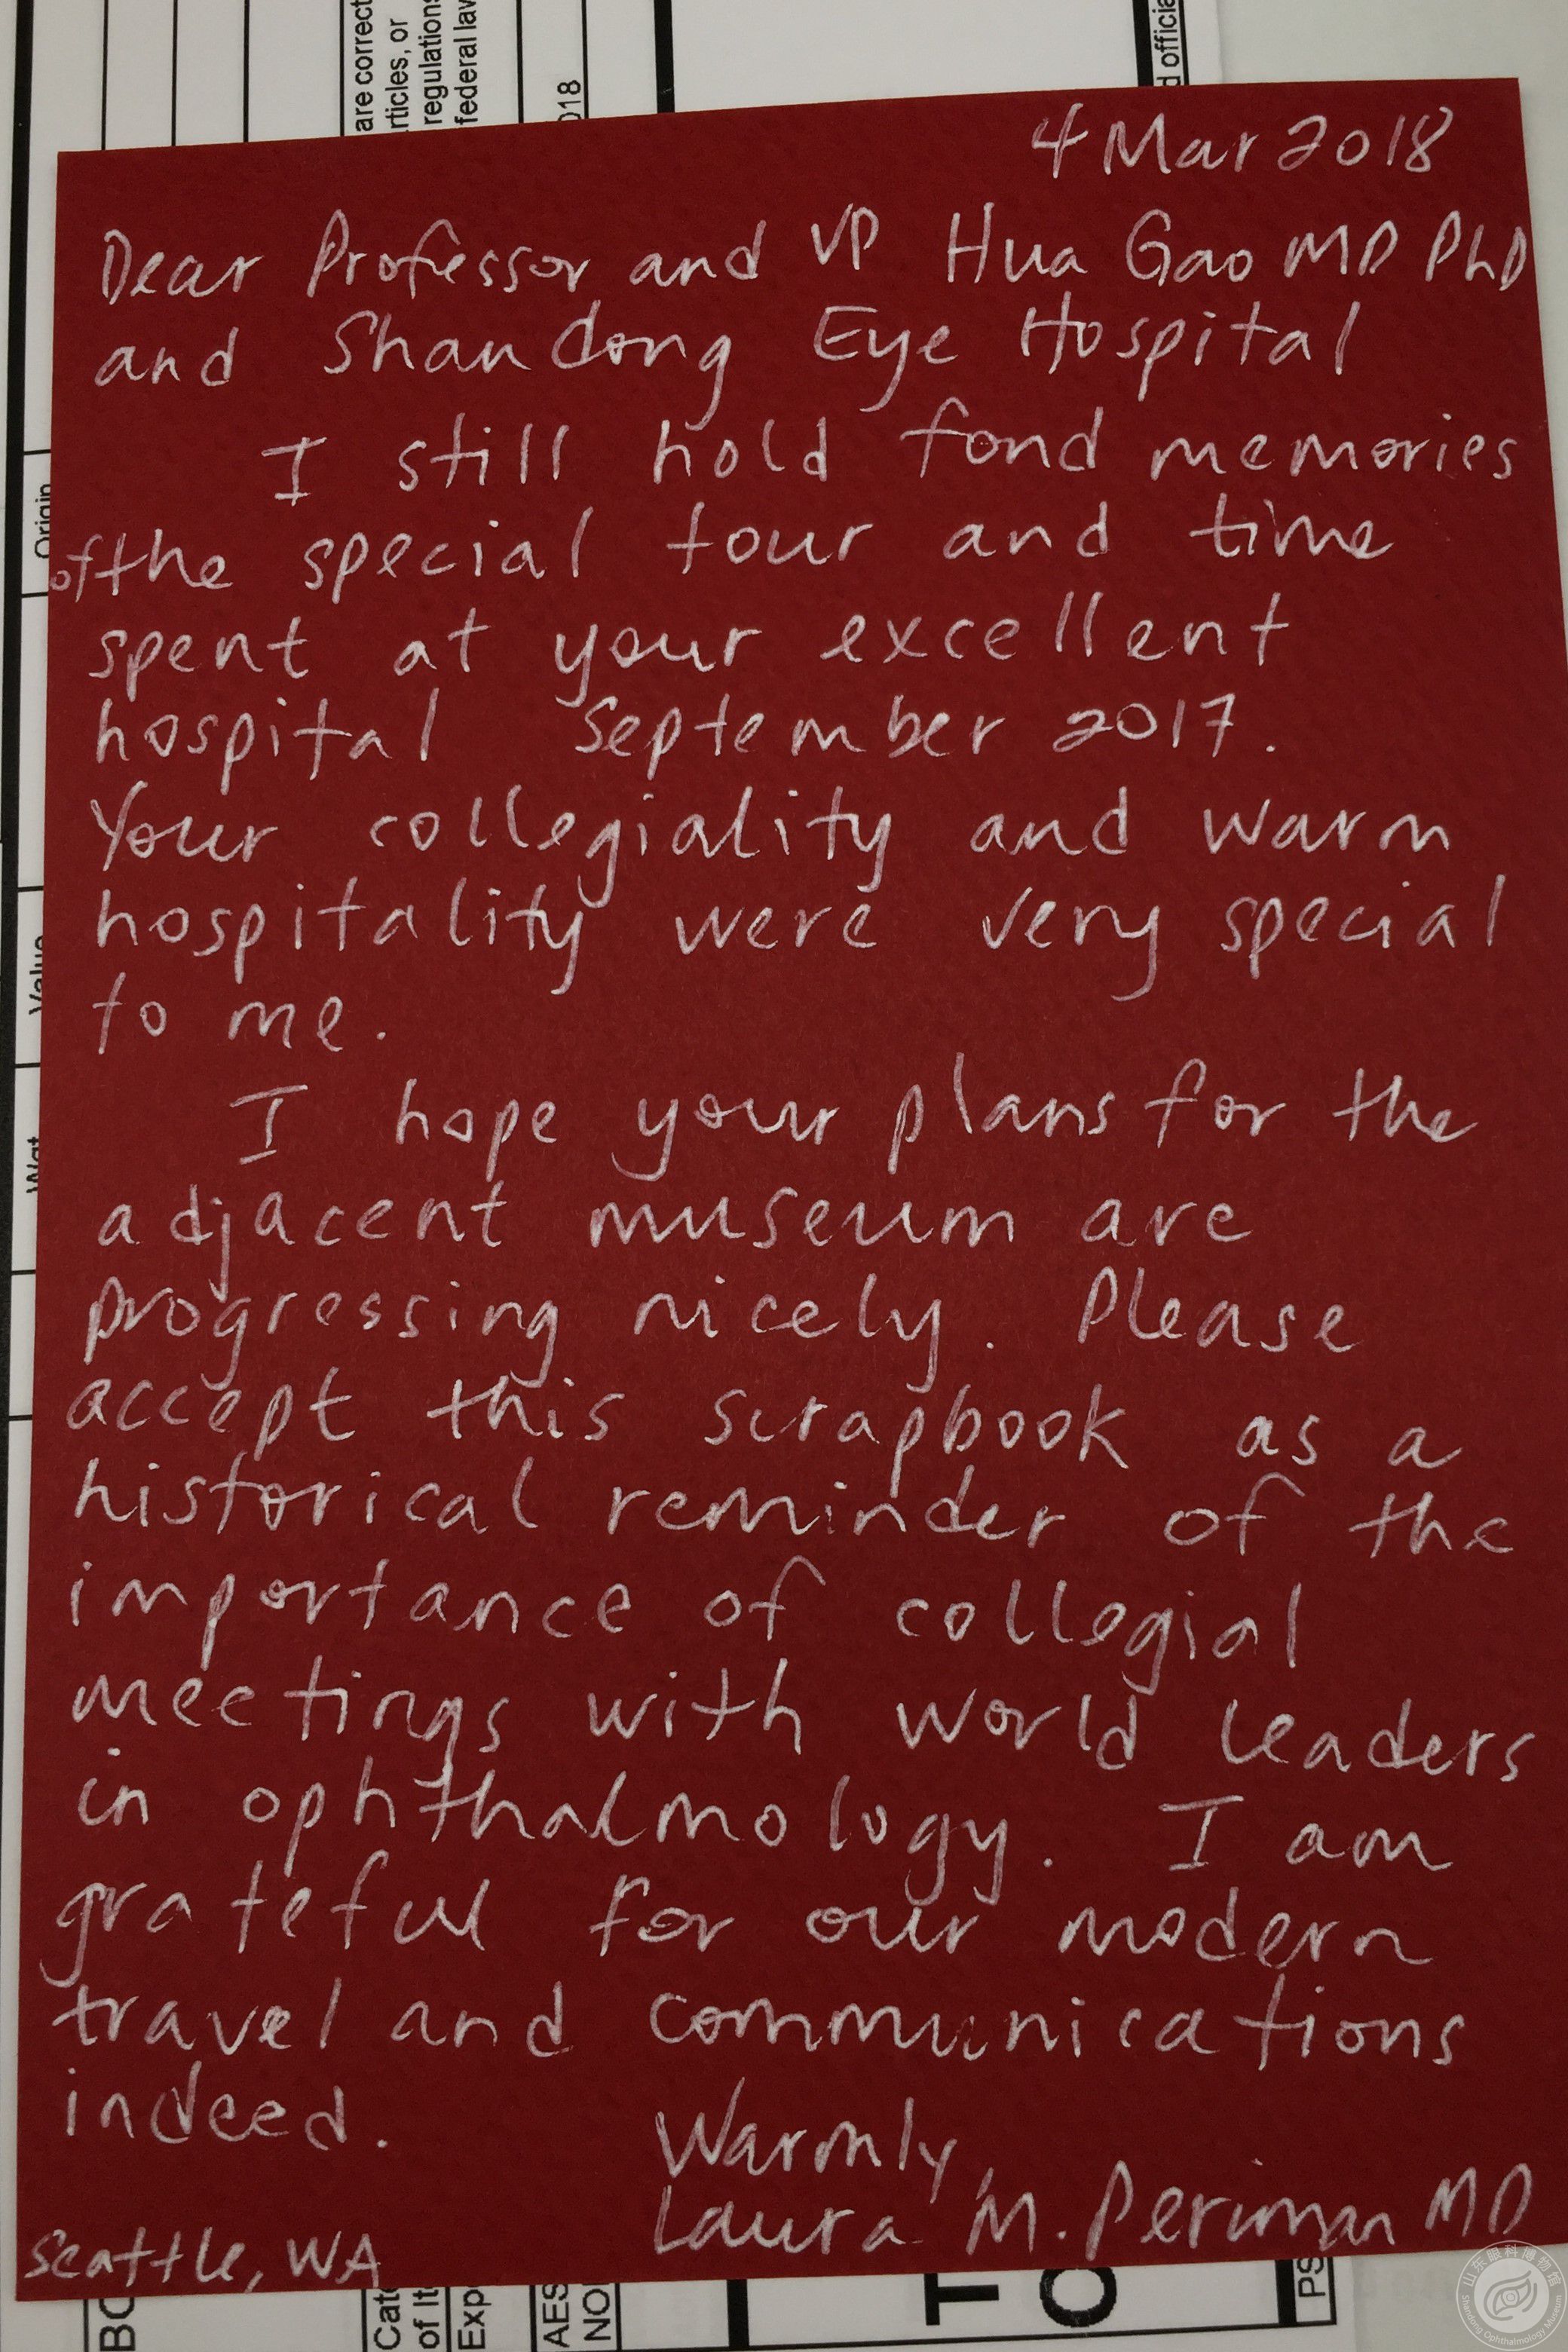 4 Mar 2018
Dear Professor and VP Hua Gao MD PhD
and Shandong Eye Hospital
I still hold fond memories
of the special tour and time
spent at your excellent
hospital September 2017.
Your collegiality and warm
hospitality were very special
to me.
I hope your plans for the
adjacent museum are
progressing nicely. Please
accept this scrapbook as a
historical reminder of the
importance of collegial
meetings with world leaders
in ophthalmology. I am
grateful for our modern
travel and communications
indeed.
Warmly,
Laura M. Periman MD
Seattle, WA
are correct
rticles, or
regulations
federal law
018
d officia
Origin
Value
Wgt
BC
Cate
of It
Exp
AES
NO
T
O
PS
山东眼科博物馆
Shandong Ophthalmology Museum